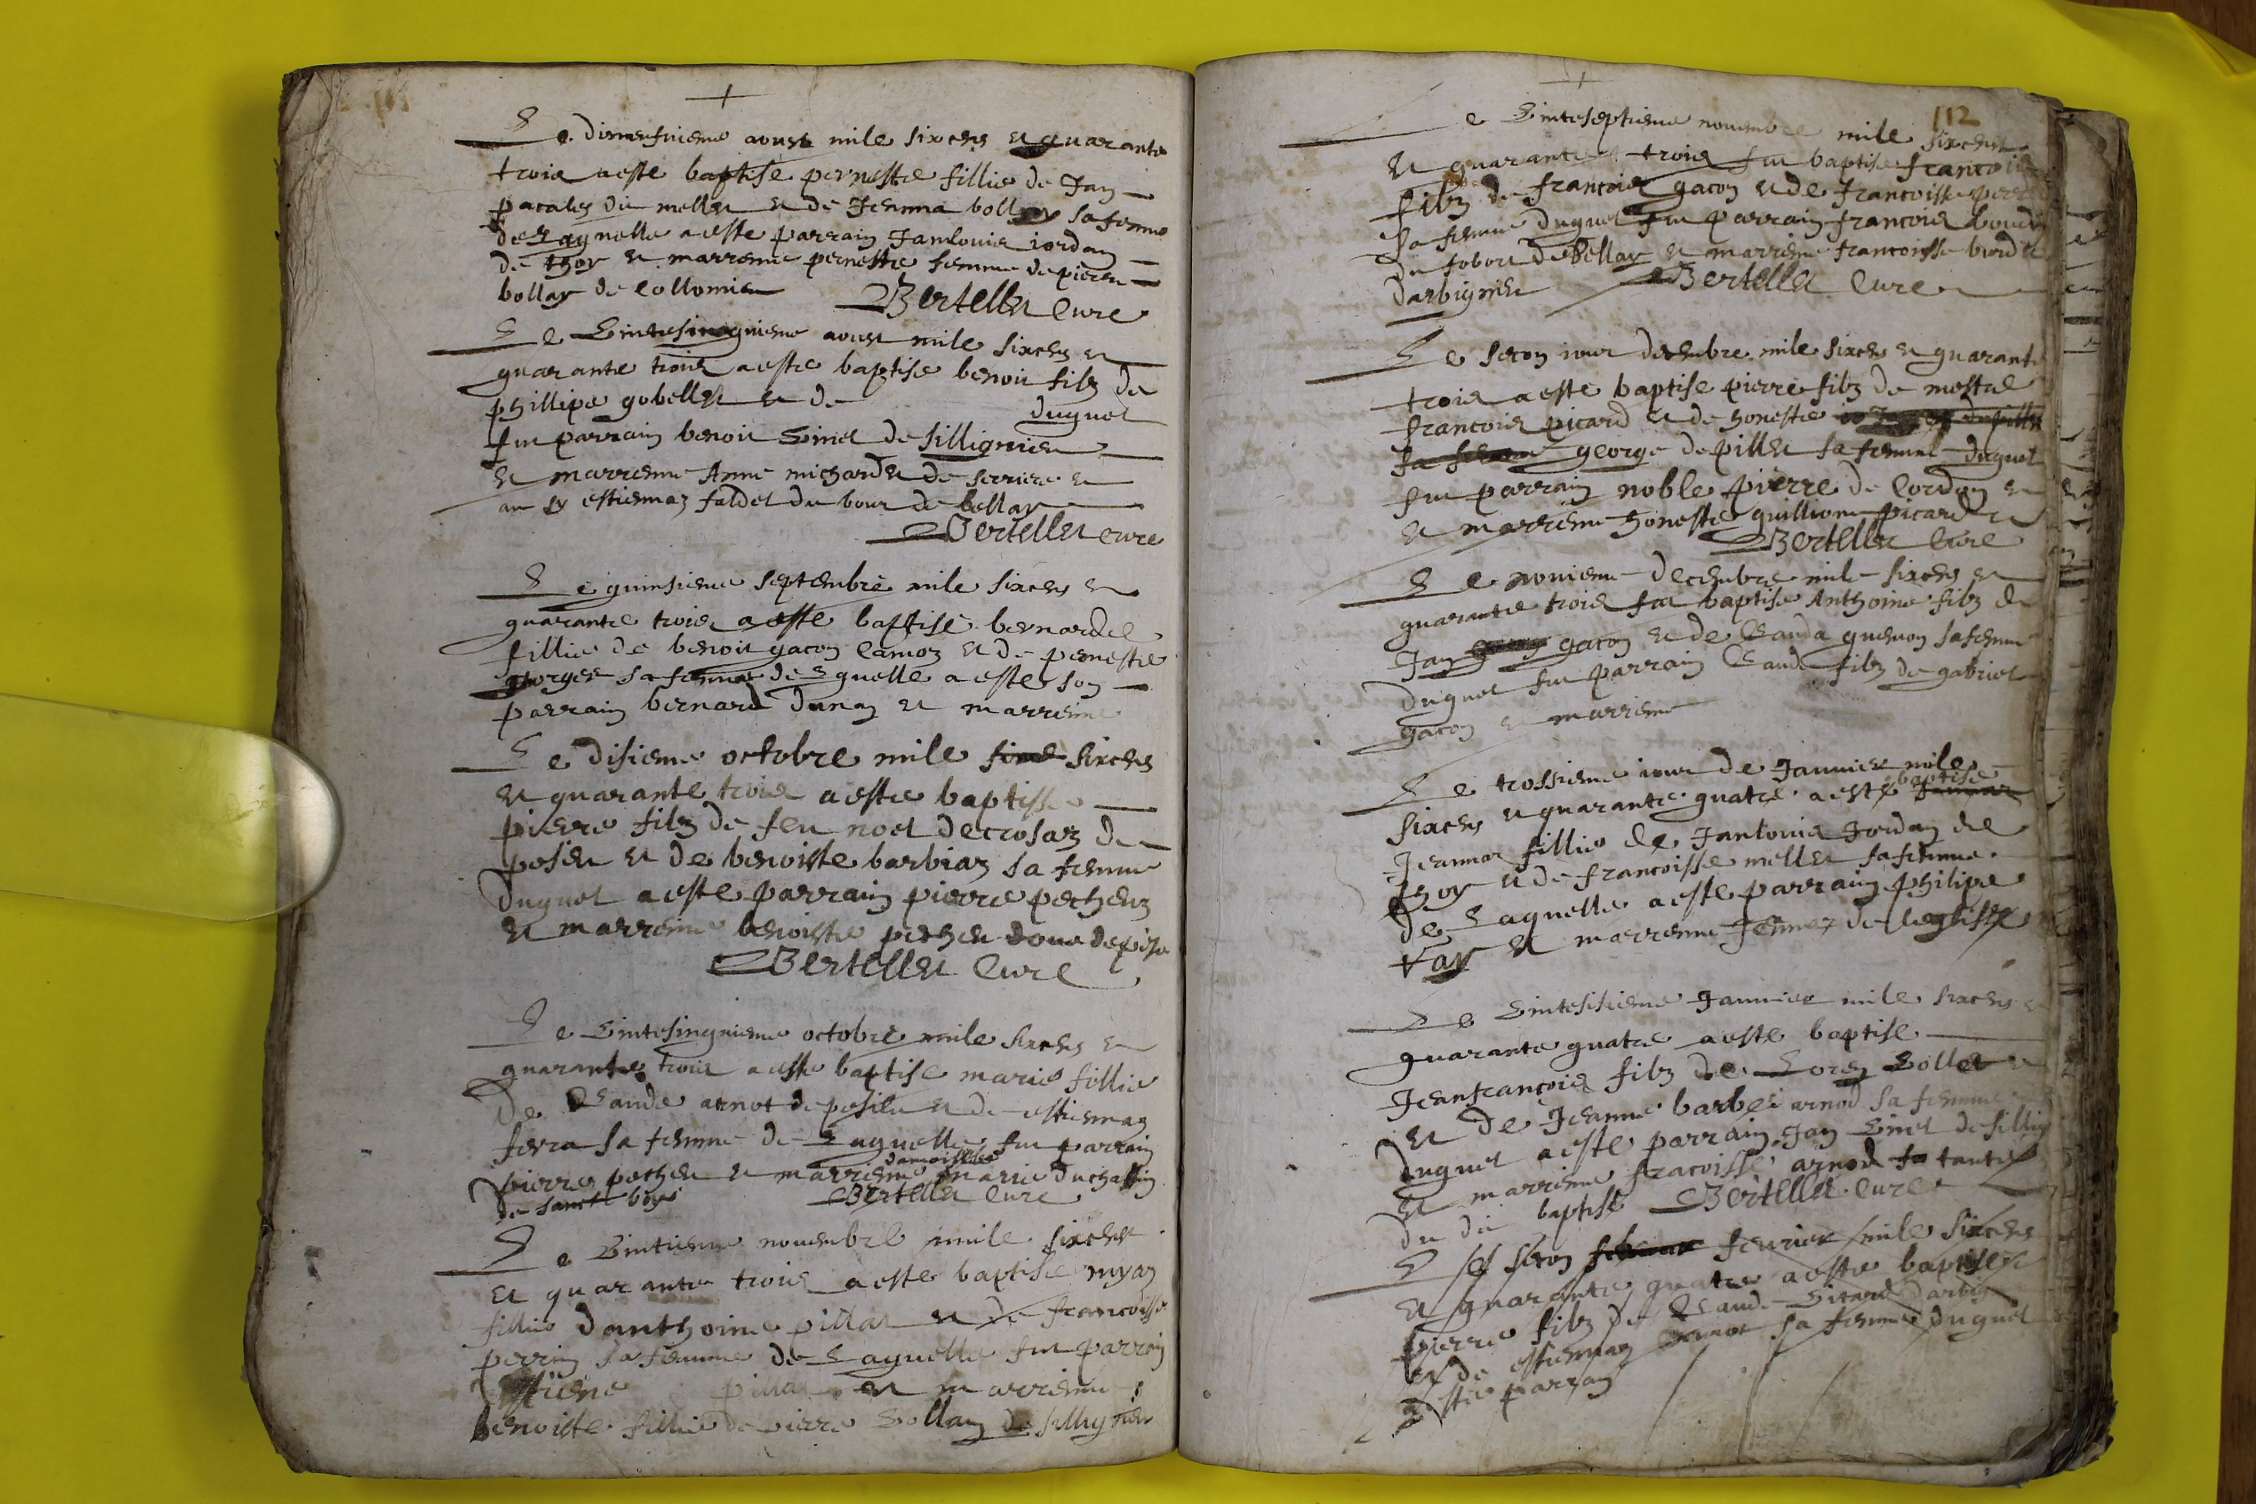 +
Le dimeufvieme aoust mile sixcens et quarante
trois a este baptise pernette fillie de Jan
pacalet du mellet et de Jemma bollay sa femme
de Laquelle a este parrain Janlouis iordan
de thoy et marrenne pernette femme de pierre
bollay de Collomieu Bertellet Cure
Le Vintesinquieme aoust mile sixcens et
quarante trois a este baptise benoit filz de
phillipe gobellet et de duquel
fut parrain benoit Vinet de Sillignieu
et marrenne Anne michardet de serriere et
au sy estiennaz faldet du bour de bellay
Bertellet cure
Le quinsieme septembre mile sixcens et
quarante trois a este baptise bernarde
fillie de benoit gacon Camoz et de pernette
georges sa femme de Lquelle a este son
parrain bernard dunan et marreine
Le disieme octobre mile sixcens
et quarante trois a este baptisse
pierre filz de feu noel decrosaz de
peseu et de benoiste barbiaz sa femme
duquel a este parrain pierre pecheuz
et marreine benoiste pecheu doue depise
Bertellet Cure
Le Vintesinquieme octobre mile sixcens et
quarante trois a este baptise marie fillie
De Claude arnot de pesieu et de estiennaz
ferra sa femme de Laquelle fut parrain
damoiselle
pierre pecheu et marrienne marie duchassin
de sanct boys Bertellet Cure
Le Vintieme novembre mile sixcens
et quarante trois a este baptise myaz
fillie danthoine pillat et de francoisse
perrin sa femme de Laquelle fut parrain
estiene pillat et marrienne
benoiste fillie de pierre Vollan de sillignieu
+
112
Le Vinteseptieme novembre mile sixcens
et quarante trois fut baptise francois
filz de francois gacon et de francoisse
sa femme duquel fut parrain francois
du fobort de Bellay et marrienne francoisse
darbignieu Bertellet Cure
Le secon iour decembre mile sixcens et quarante
trois a este baptise pierre filz de mestre
francois picard et de honeste
sa femme george depillet sa femme duquel
fut parrain noble pierre de Cordon et
et marrienne honeste guillione picard
Bertellet Cure
Le novieme decembre mile sixcens et
quarante trois fut baptise Anthoine filz de
Jan gacon et de Clauda quenon sa femme
duquel fut parrain Claude filz de gabriel
gacon et marrienne
Le trossieme iour de Janvier mile
baptise
sixcens et quarante quatre a este
Jeannaz fillie de Janlouis Jordan de
thoy et de francoisse mellet sa femme
de Laquelle a este parrain philipe
Vay et marrenne Jennaz de Leglisse
Le Vintesisieme Janvier mile sixcens et
quarante quatre a este baptise
Jeanfrançois filz de Loren Vollet
et de Jeanne barbe arnod sa femme
duquel a este parrain Jan Vinet de sillign
et marrienne fracoisse arnod tante
du dit baptise Bertellet Cure
Le secon fevrier mile sixcens
et quarante quatre a este baptise
pierre filz de Claude Sitard darbig
et de estiennaz sa femme duquel
a este parrain